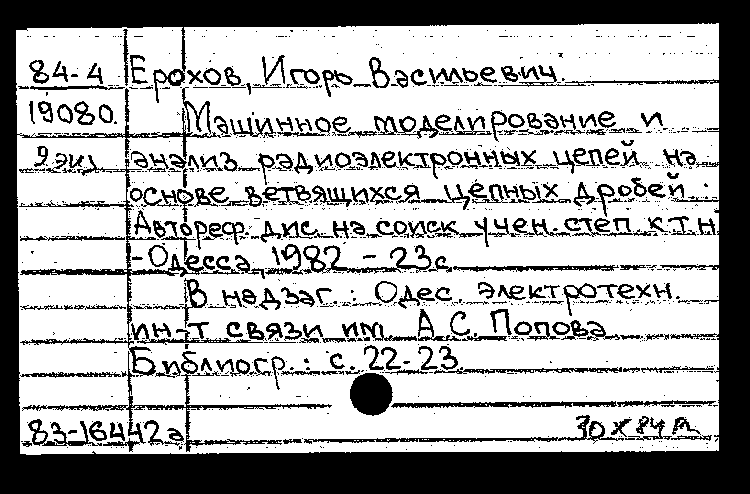 84-4 Ерохов, Игорь Васильевич.
19080. Машинное моделирование и
2 экз анализ радиоэлектронных цепей на
основе ветвящихся цепных дробей.
Автореф. дис. на соиск учен. степ к.т.н
- Одесса, 1982 - 23с
В надзаг.: Одес. электротехн.
ин-т связи им. А.С. Попова
Библиогр.: с. 22-23.
83-16442а 30 X 84